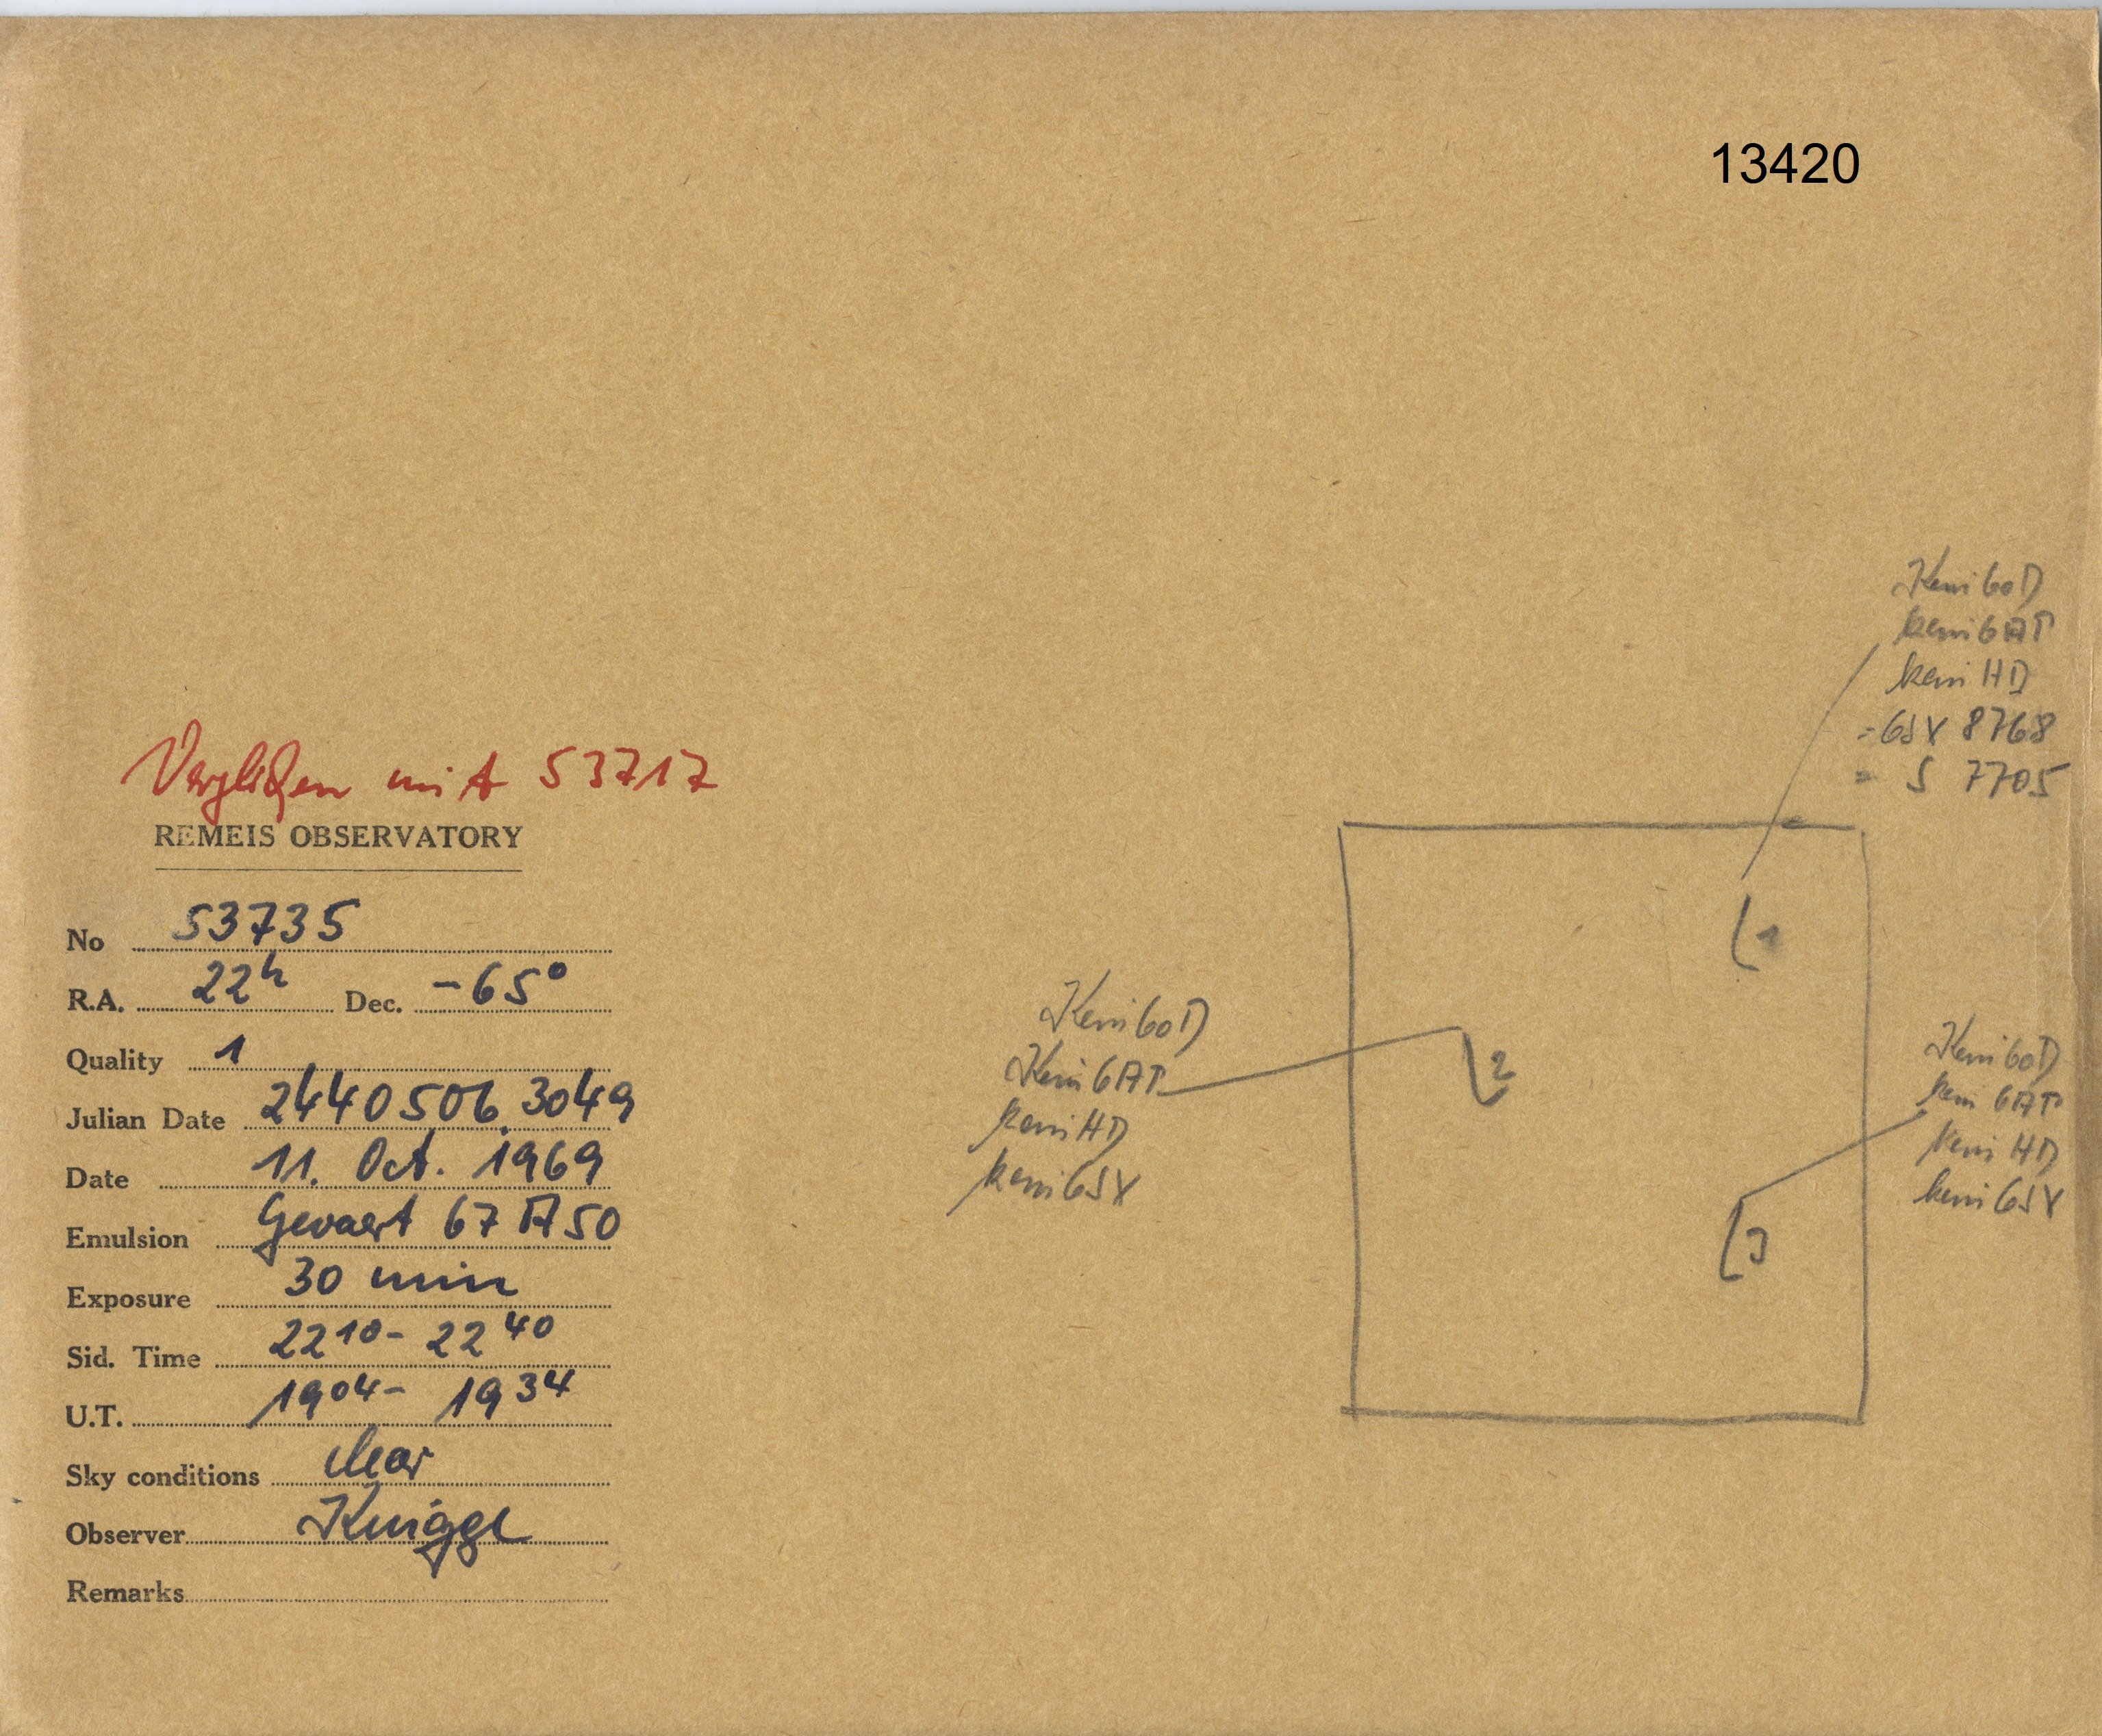 13420
Verglichen mit 53717
REMEIS OBSERVATORY
No 53735
R.A. 22h Dec. -65°
Quality 1
Julian Date 2440506.3049
Date 11. Oct. 1969
Emulsion Gevaert 67 A 50
Exposure 30 min
Sid. Time 22 10 - 22 40
U.T. 19 04 - 19 34
Sky conditions clear
Observer Knigge
Remarks
Kein CoD
kein CAP
kein HD
= CSV 8768
= S 7705
1
Kein CoD
Kein CAP
kein HD
kein CSV
2
Kein CoD
kein CAP
kein HD
kein CSV
3